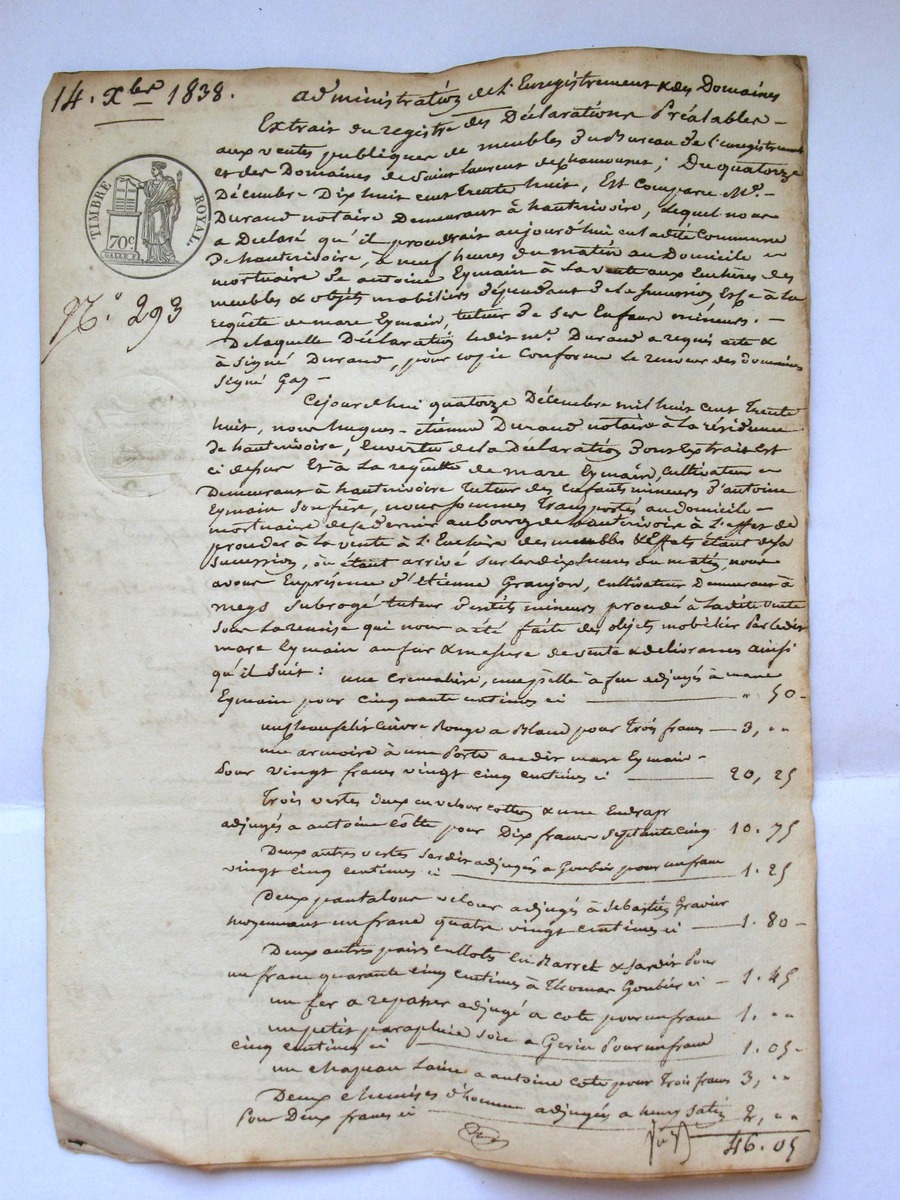 14. Xbre 1838.
administration de l'Enregistrement & des Domaines
Extrait du registre des Déclarations Préalables
aux ventes publiques de meubles du Bureau de l'enregistrement
et des Domaines de Saint Laurent de Chamousset ; Du quatorze
Décembre Dix huit cent trente huit, Est Comparu Me.
Durand notaire Demeurant à hauterivoire, Lequel nous
a Déclaré qu'il procedrait aujourd'hui en ladite Commune
D'hauterivoire, à neuf heures du matin au Domicile
mortuaire de antoine Eymain à la vente aux Enchères des
meubles & objets mobiliers dépendant de la succession, Et ce à la
requête de marc Eymain, tuteur de ses Enfans mineurs. -
De laquelle Déclaration ledit me. Durand a requis acte &
à Signé Durand, pour copie Conforme le receveur des domaines
Signé Gas -
TIMBRE ROYAL
70c.
No. 293
Cejourd'hui quatorze Décembre mil huit cent trente
huit, nous hugues-étienne Durand notaire à la résidence
de hauterivoire, En vertu de la Déclaration dont Extrait Est
ci dessus Et à la requête de marc Eymain, Cultivateur
Demeurant à hauterivoire tuteur des enfants mineurs d'antoine
Eymain son frère, nous sommes transportés au domicile
mortuaire de ce dernier au bourg de hauterivoire à l'effet de
procéder à la vente à l'Enchère des meubles & Effets étant de sa
succession, où étant arrivé sur les dix heures du matin, nous
avons En présence d'étienne Granjon, cultivateur demeurant à
meys subrogé tuteur desdits mineurs procédé à ladite vente
sous la remise qui nous a été faite des objets mobilier par ledit
marc Eymain au fur & mesure de vente & delivrance ainsi
qu'il suit : une Cremalière, une pelle à feu adjugés à marc
Eymain pour cinquante centimes ci " 50 -
Cuivre Rouge a Blanc pour trois francs 3, "
une armoire à une Porte audit marc Eymain
Pour vingt francs vingt cinq centimes ci 20, 25
Trois vestes deux en velour cotton & une En drap
adjugés a antoine Côte pour Dix francs septante cinq 10. 75
Deux autres vestes adjugés a Goubier pour un franc
vingt cinq centimes ci 1. 25
Deux pantalons velour adjugés à Sébastien Gravier
moyennant un franc quatre vingt centimes ci 1. 80 -
Deux autres pairs cullotes Pour
un franc quarante cinq centimes à Thomas Goubier ci 1. 45
un fer a repasser adjugé a cote pour un franc 1. "
un petit parapluie soie a Gerin Pour un franc
cinq centimes ci 1. 05 -
un chapeau Laine a antoine cote pour trois francs 3, "
Deux chemises d'homme adjugés a
Pour Deux francs ci 2, "
46. 05